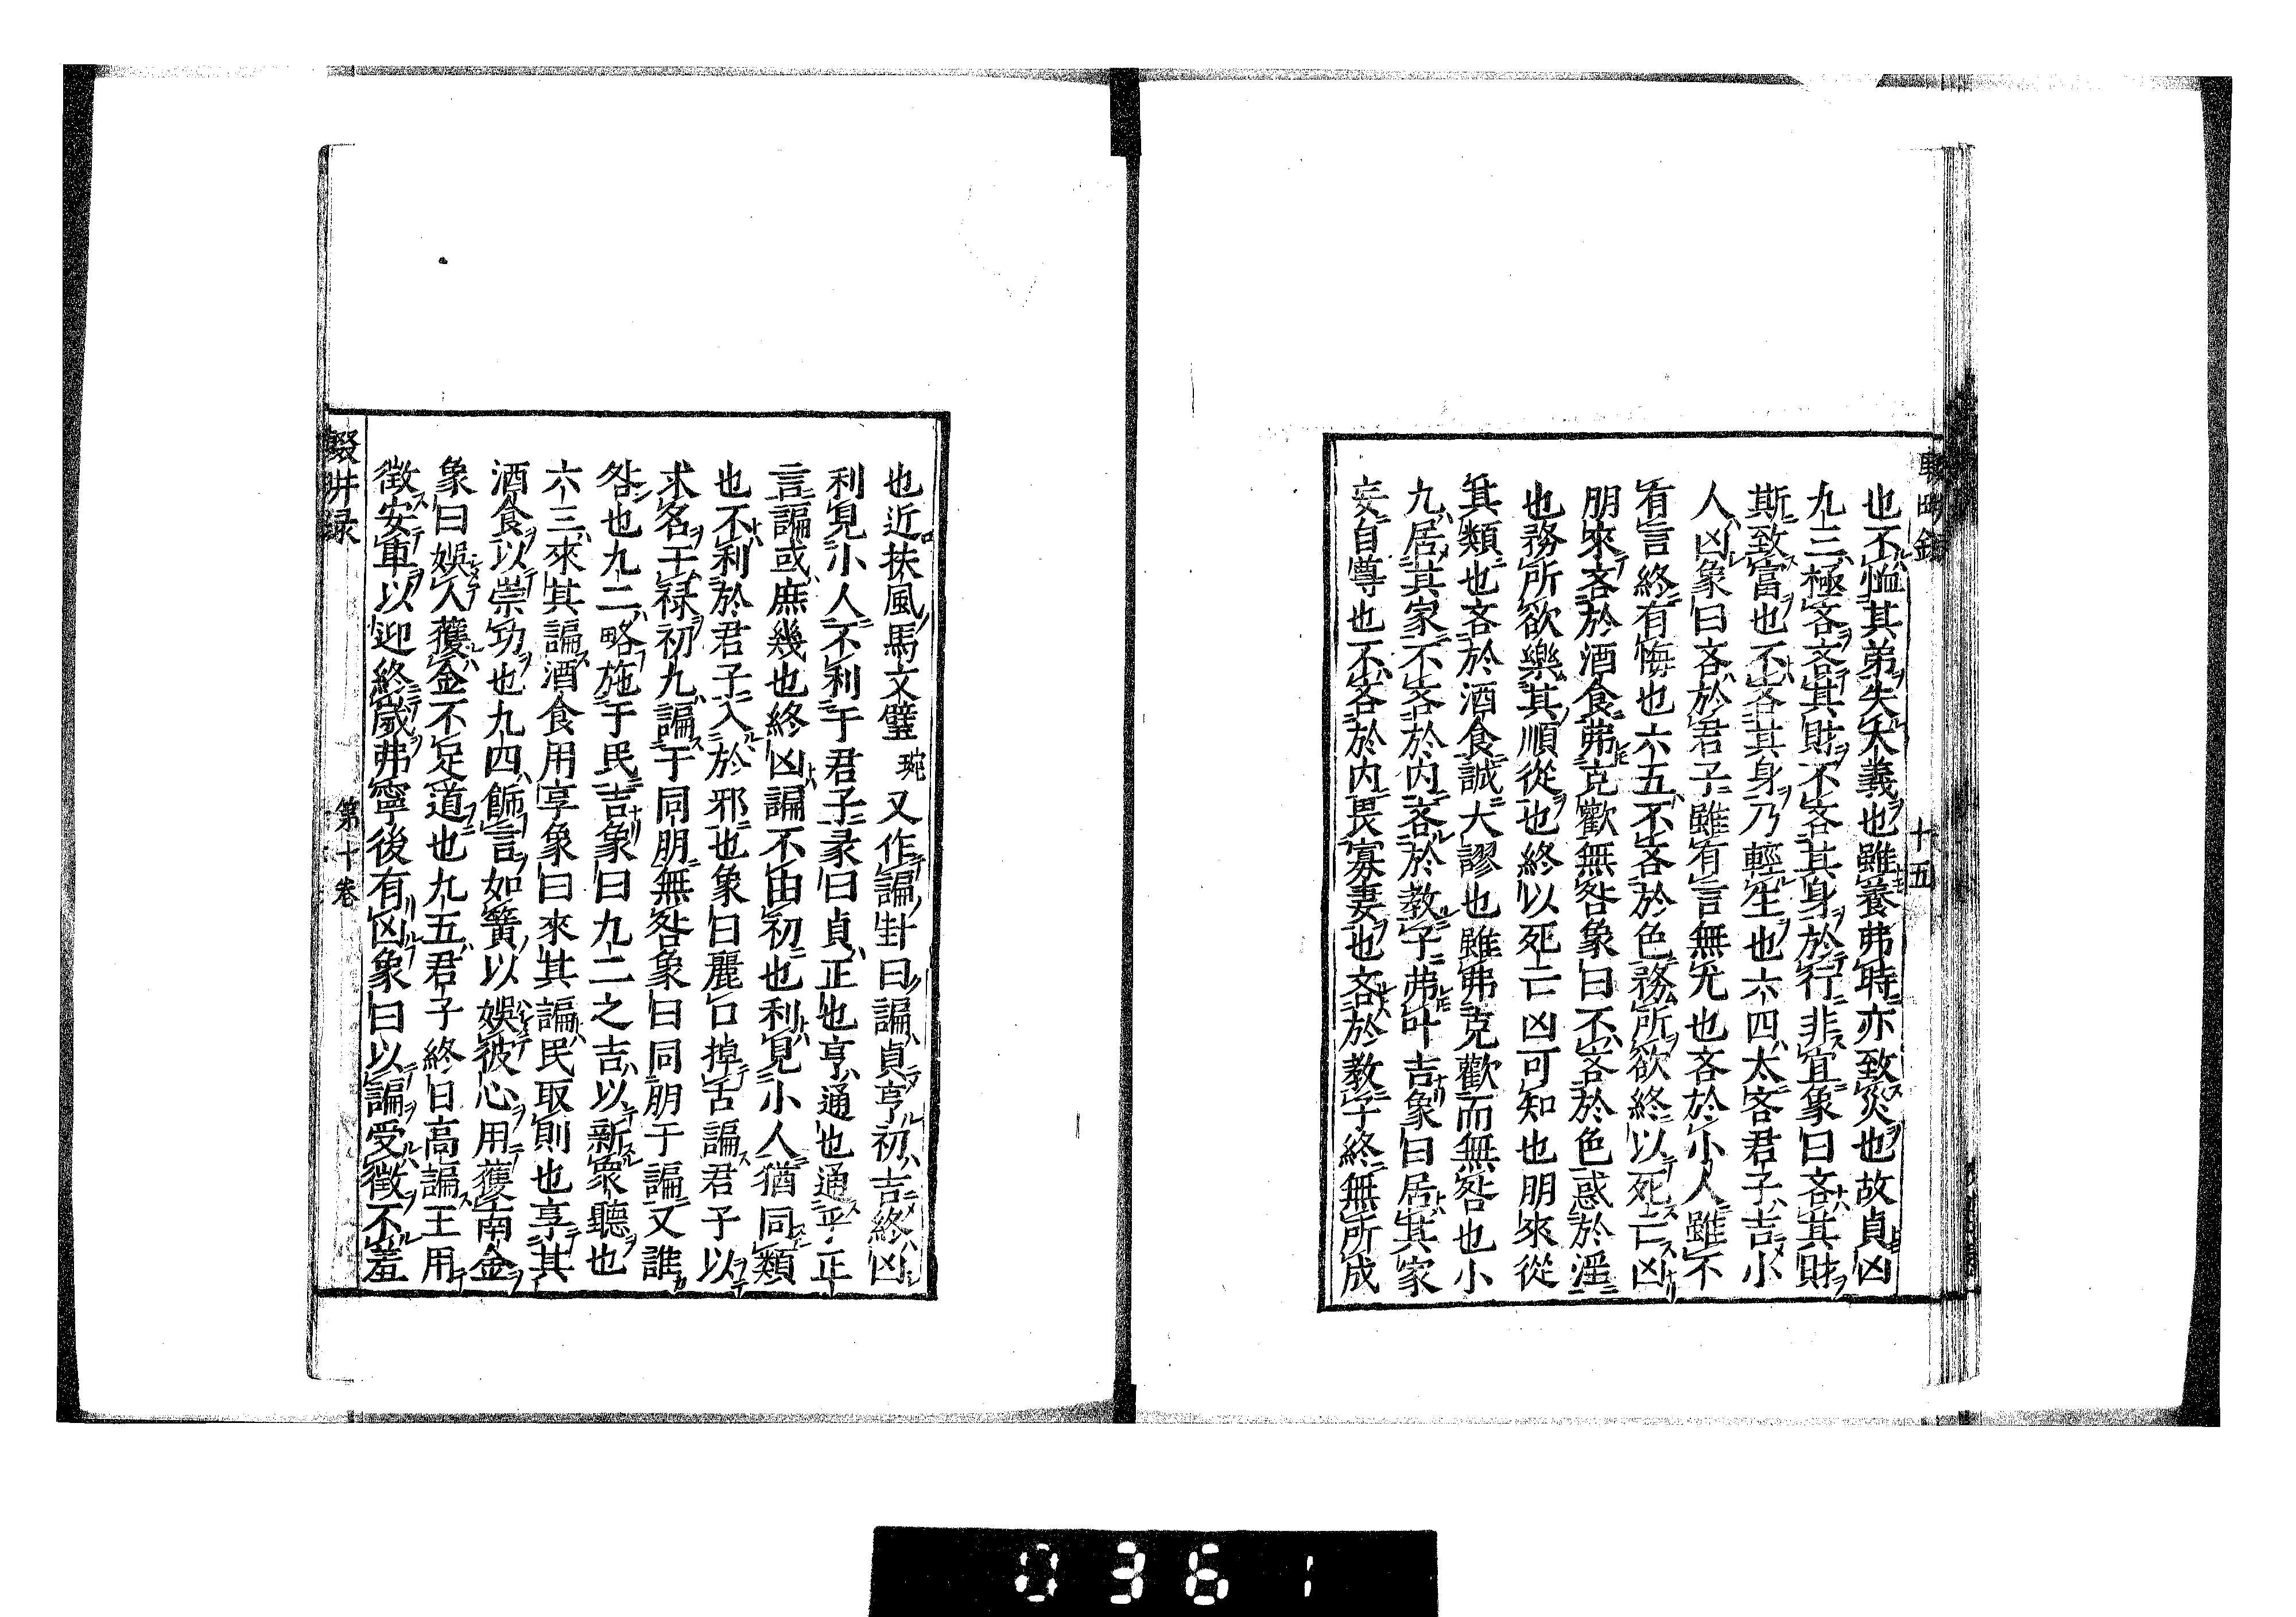 十五
也不恤其弟失大義也雖養弗時亦致災也故貞凶
九三極吝吝其財不吝其身於行非宜象曰吝其財
斯致富也不吝其身乃輕生也六四太吝君子吉小
人凶象曰吝於君子雖有言無尤也吝於小人雖不
有言終有悔也六五不吝於色務所欲終以死亡凶
朋來吝於酒食弗克歡無咎象曰不吝於色惑於淫
也務所欲樂其順從也終以死亡凶可知也朋來從
其類也吝於酒食誠大謬也雖弗克歡而無咎也小
九居其家不吝於内吝於教子弗叶吉象曰居其家
妄自尊也不吝於内畏寡妻也吝於教子終無所成
也近扶風馬文璧琬又作諞卦曰諞貞亨初吉終凶
利見小人不利于君子彖曰貞正也亨通也通乎正
言諞或庶幾也終凶諞不由初也利見小人猶同類
也不利於君子入於邪也象曰麗口掉舌諞君子以
求名干禄初九諞于同朋無咎象曰同朋于諞又誰
咎也九二略施于民吉象曰九二之吉以新衆聽也
六三來其諞酒食用享象曰來其諞民取則也享其
酒食以崇功也九四飾言如簧以娯彼心用獲南金
象曰娯人獲金不足道也九五君子終日高諞王用
徵安車以迎終歳弗寧後有凶象曰以諞受徵不羞
輟畊録
第十卷
0361